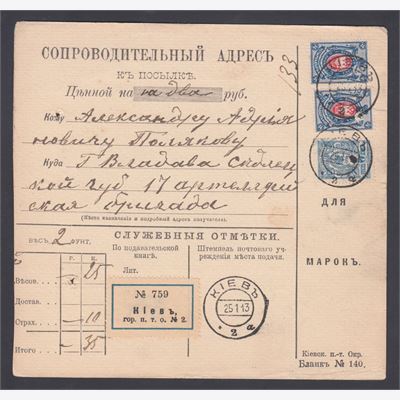 СОПРОВОДИТЕЛЬНЫЙ АДРЕСЪ
КЪ ПОСЫЛКѢ.
Цѣнной на на два руб.
133
Кому Александру Адріа
новичу Полякову
Куда Г Влодава Сѣдлец
кой губ 17 артеллерій
ская бригада
(Мѣсто назначенія и подробный адресъ получателя).
ДЛЯ
МАРОКЪ.
СЛУЖЕБНЫЯ ОТМѢТКИ.
ВѢСЪ 2 ФУНТ.
По подавательской
книгѣ.
Штемпель почтоваго уч-
режденія мѣста подачи.
Р. К.
Лит.
Вѣсов. 25
Достав.
Страх. 10
Итого 35
№ 759
Кіевъ,
гор. п. т. о. № 2.
КІЕВЪ
25 1 13
* 2 а
Кіевск. п.-т. Окр.
Бланкъ № 140.